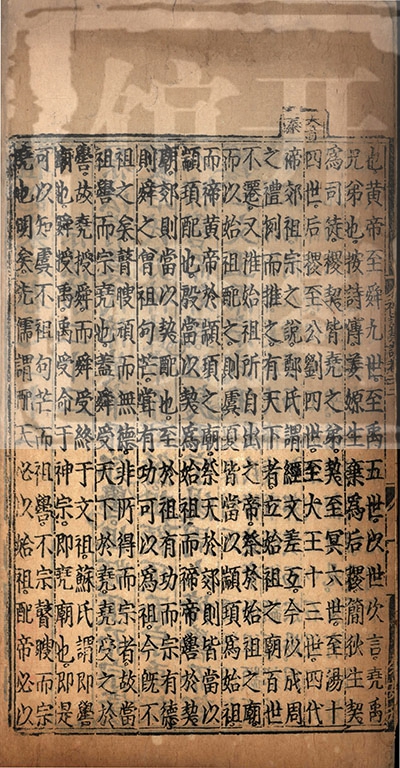 也黃帝至舜九世至禹五世以世次言堯禹
兄弟也按詩傳姜嫄生棄為后稷簡狄生契
為司徒稷契皆堯之弟契至冥六世至湯十
四世后稷至公劉四世至大王十三世四代
帝郊祖宗之說鄭氏謂經文差互今以成周
之禮例而推之有天下者立始祖之廟百世
不遷又推始祖所自出之帝祭於始祖之廟
而以始祖配之則虞夏皆當以顓頊為始祖
而禘黃帝於顓頊之廟祭天於郊則皆當以
顓頊配也殷當以契為始祖而禘帝嚳於契
廟郊則當以契配也至於祖有功而宗有德
則舜之曾祖句芒嘗有功可以為祖今既不
祖之矣瞽瞍頑而無德非所得而宗者故當
祖嚳而宗堯也蓋舜受天下於堯堯受之於
嚳故堯授舜而舜受終于文祖蘇氏謂即嚳
廟也舜授禹禹受命于神宗即堯廟也即是
可以知虞不祖句芒而祖嚳不宗瞽瞍而宗
堯也明矣先儒謂配天必以始祖配帝必以